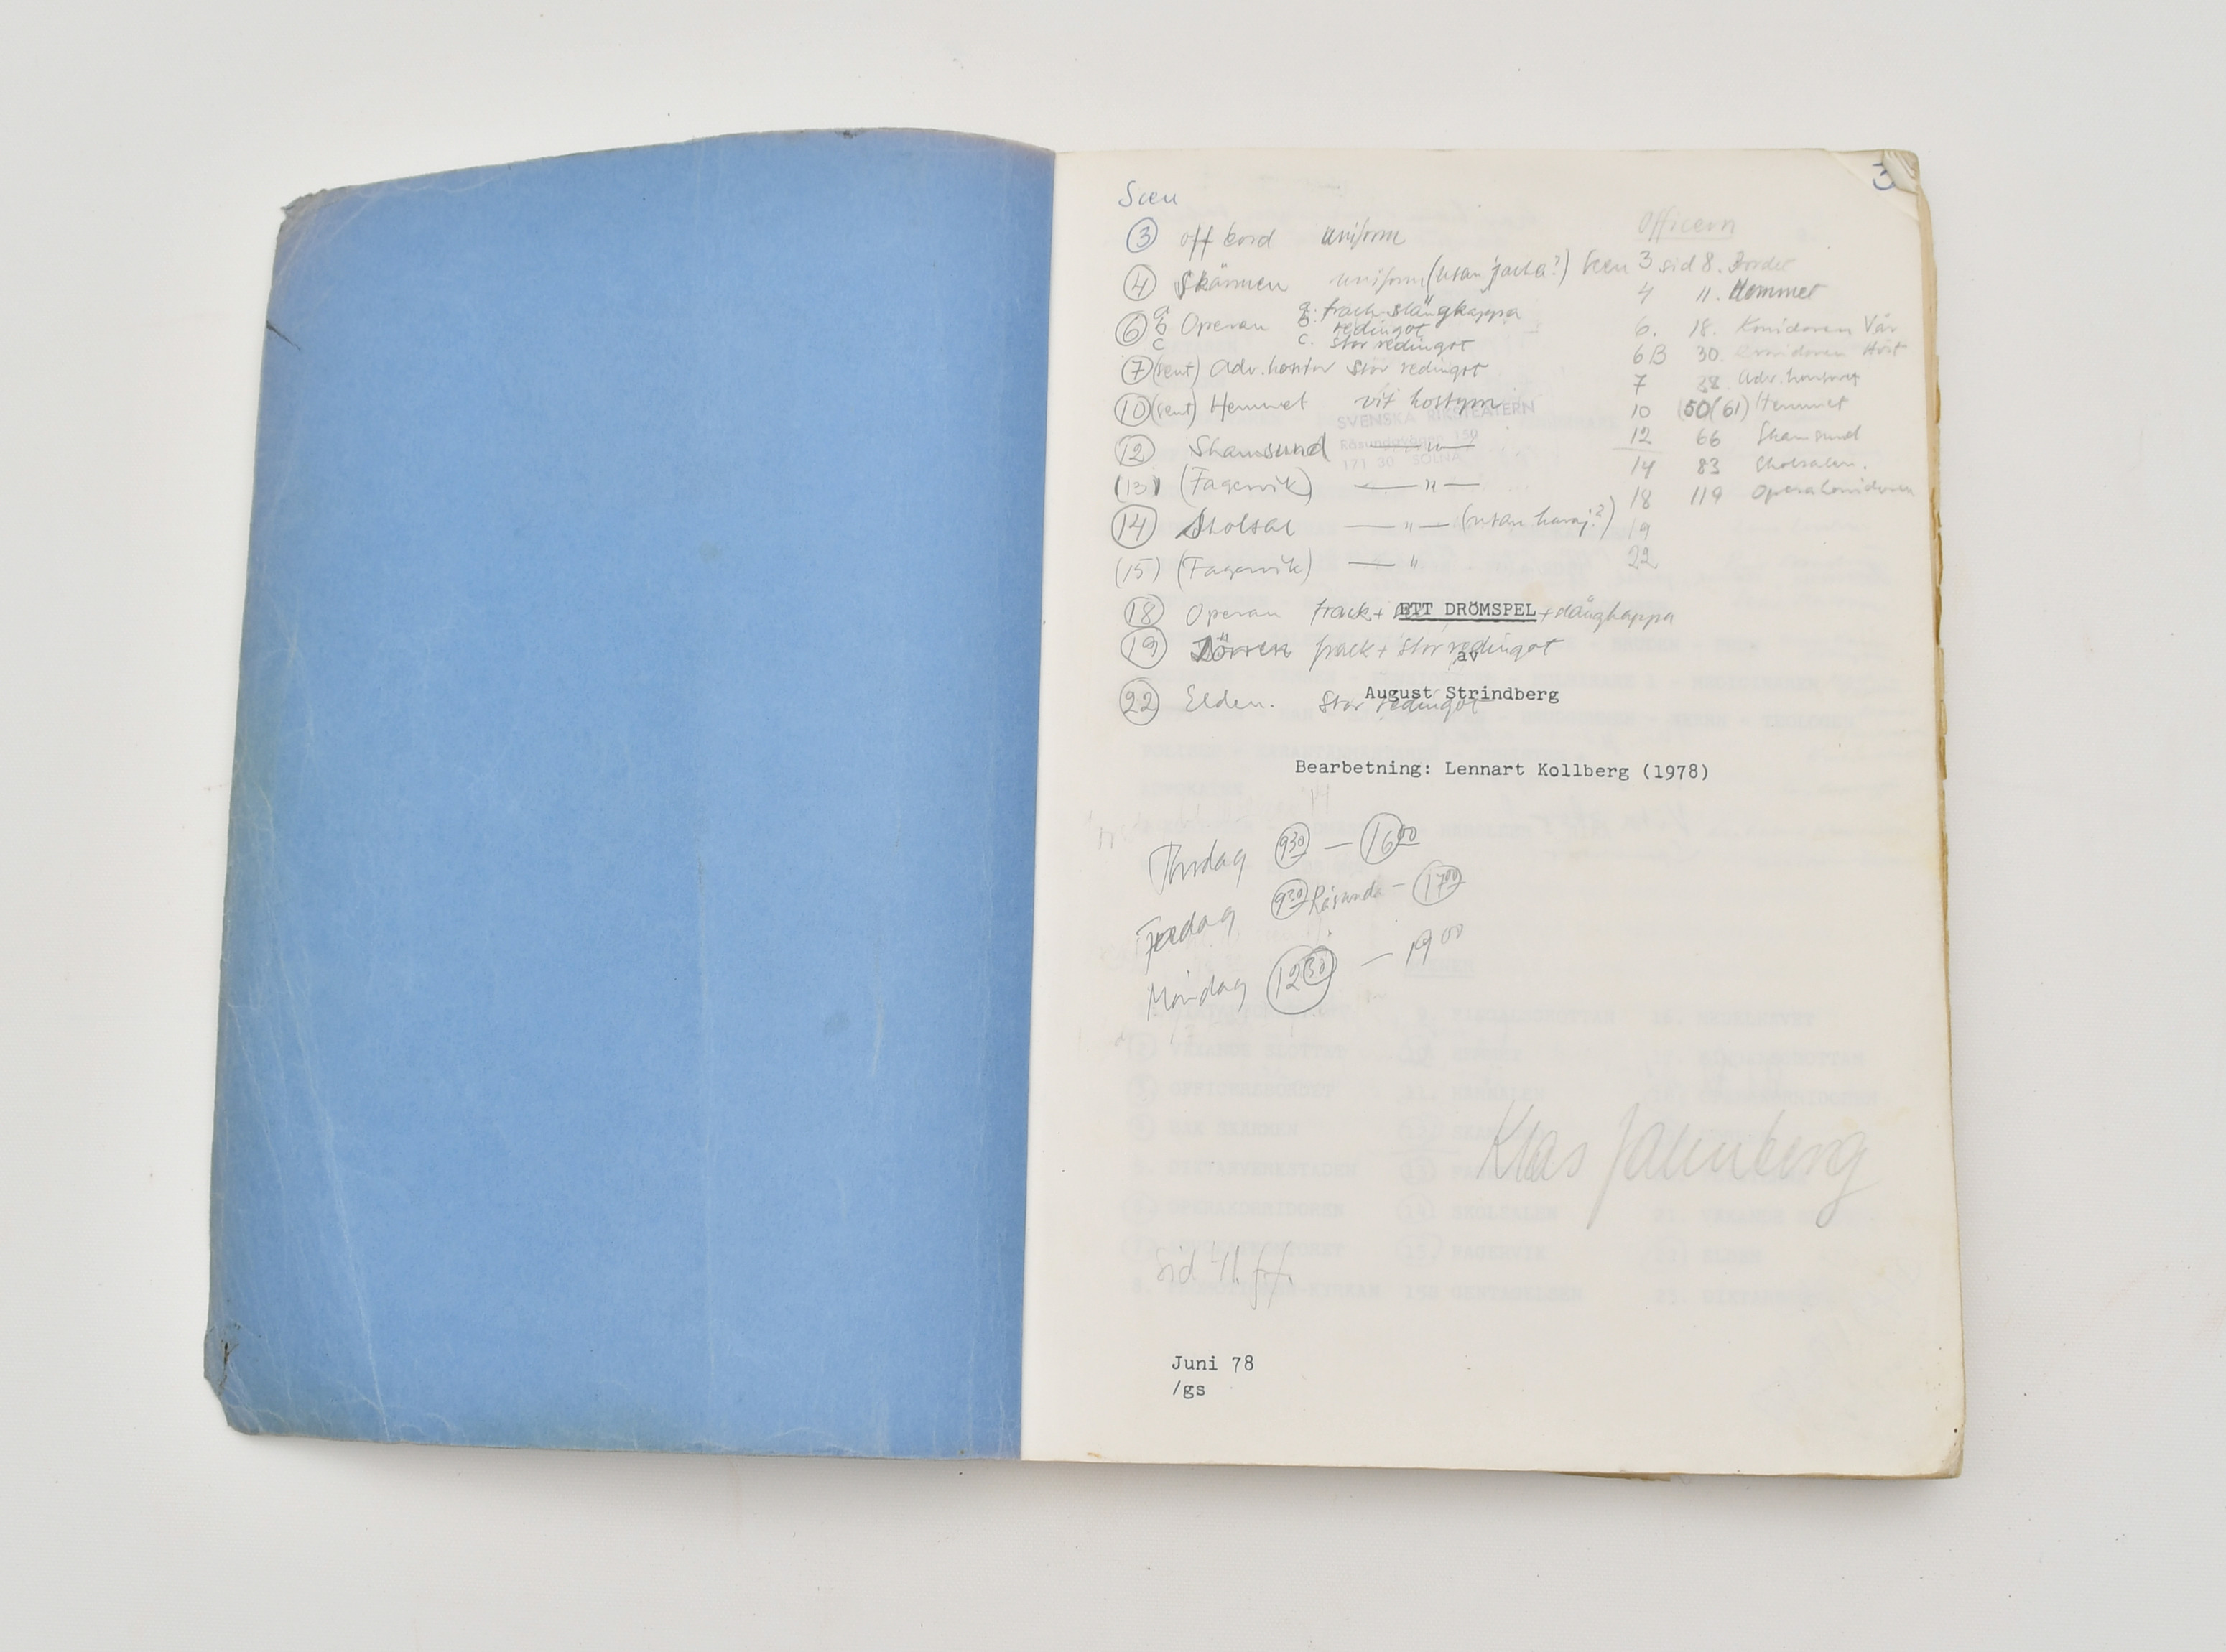 Scen
3
3 off bord uniform
Officern
4 Skärmen uniform (utan jacka?) Scen 3 sid 8. Bordet
4 11. Hemmet
6 a b c Operan a. frack-slängkappa
b. redingot
c. stor redingot
6. 18. Korridoren Vår
6B 30 Korridoren Höst
7 (sent) Adv. kontor stor redingot
7 38 Adv. kontoret
10 (sent) Hemmet vit kostym
10 50 (61) Hemmet
SVENSKA RIKSTEATERN
Råsundavägen 150
171 30 SOLNA
12 Skamsund — " —
12 66 Skamsund
(13) (Fagervik) — " —
14 83 Skolsalen.
18 119 Operakorridoren
14 Skolsal — " — (utan kavaj?)
19
(15) (Fagervik) — "
22
18 Operan frack + + slängkappa
ETT DRÖMSPEL
19 Dörren frack + stor redingot
av
August Strindberg
22 Elden. stor redingot
Bearbetning: Lennart Kollberg (1978)
Torsdag 930 — 1600
Fredag 930 Råsunda — 1700
Måndag 1230 — 1900
Klas
sid 41 ff.
Juni 78
/gs